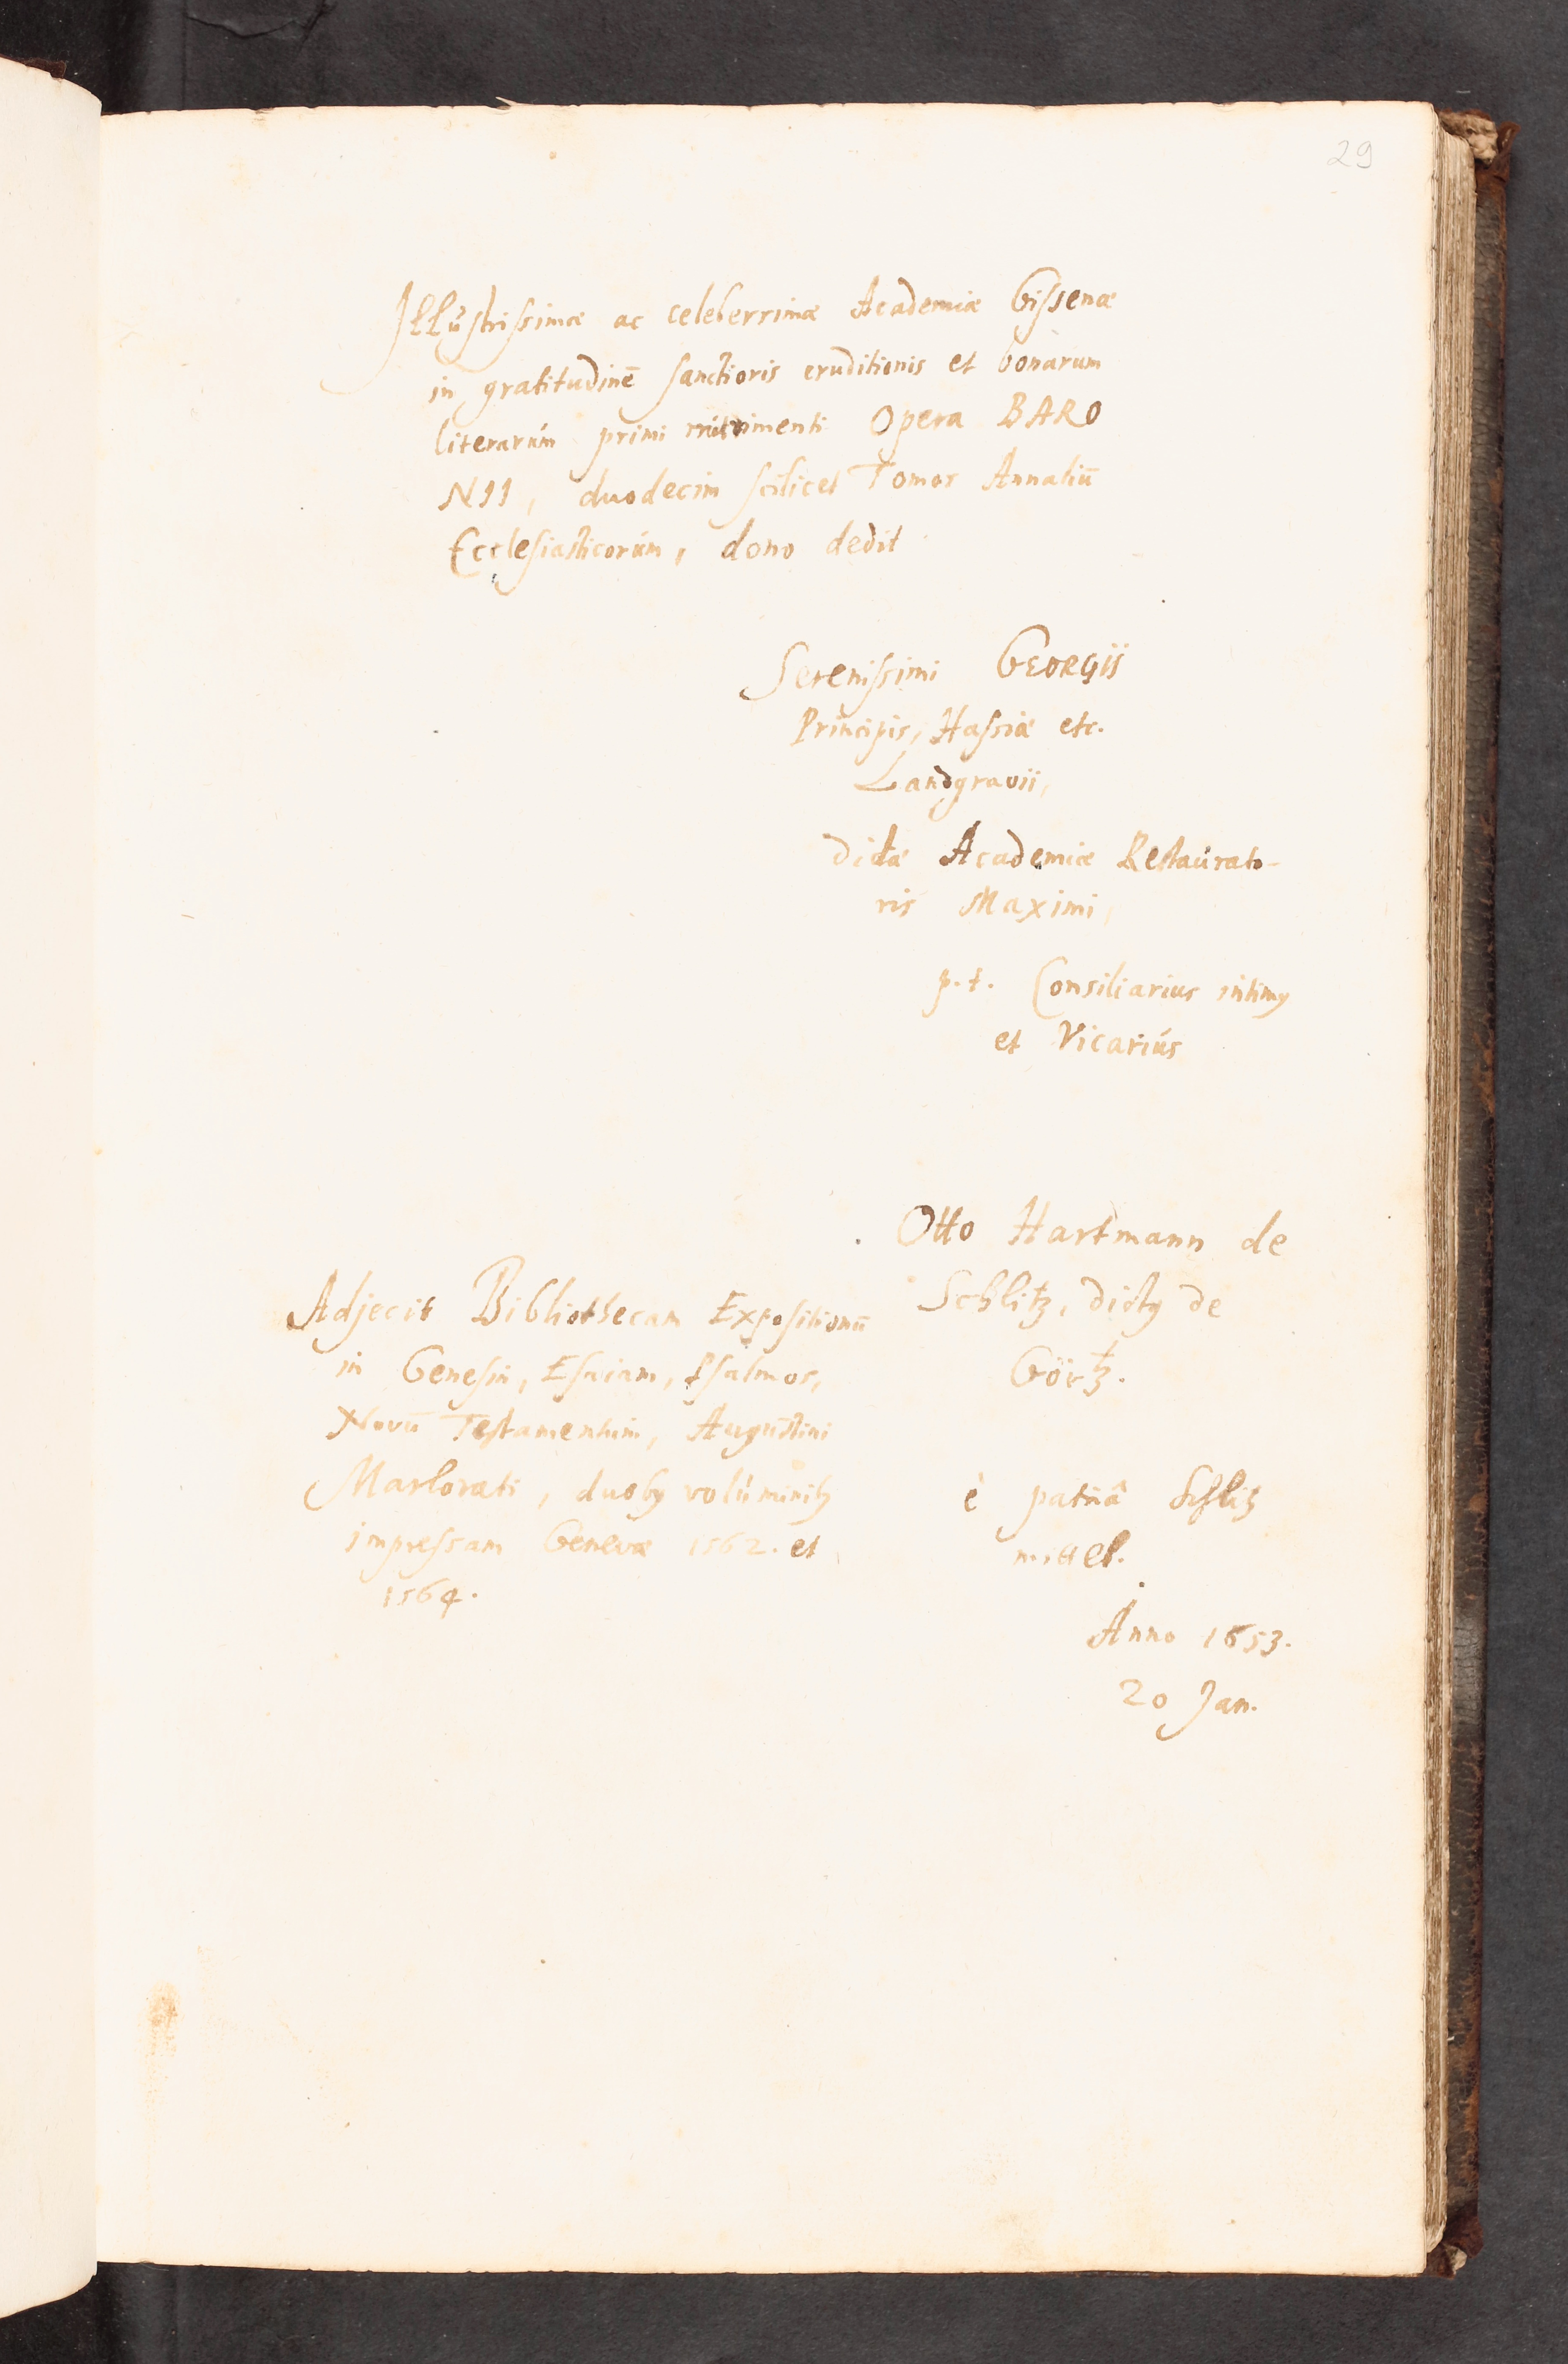 29
Jllustrissimæ ac celeberrimæ Academiæ Gissenæ
in gratitudinē sanctioris eruditionis et bonarum
literarum primi nutrimenti Opera BARO
NII, duodecim scilicet Tomos Annaliū
Ecclesiasticorum, dono dedit
Serenissimi GEORGii
Principis, Hassiæ etc.
Landgravii,
dictæ Academiæ Restaurato-
ris Maximi,
p.t. Consiliarius intimꝰ
et Vicarius
Otto Hartmann de
Schlitz, dictꝰ de
Görtz.
è patriâ Schlitz
mittel.
Anno 1653.
20 Jan.
Adjecit Bibliothecam Expositionū
in Genesin, Esaiam, Psalmos,
Novū Testamentum, Augustini
Marlorati, duobꝰ voluminibꝰ
impressam Genevæ 1562. et
1564.